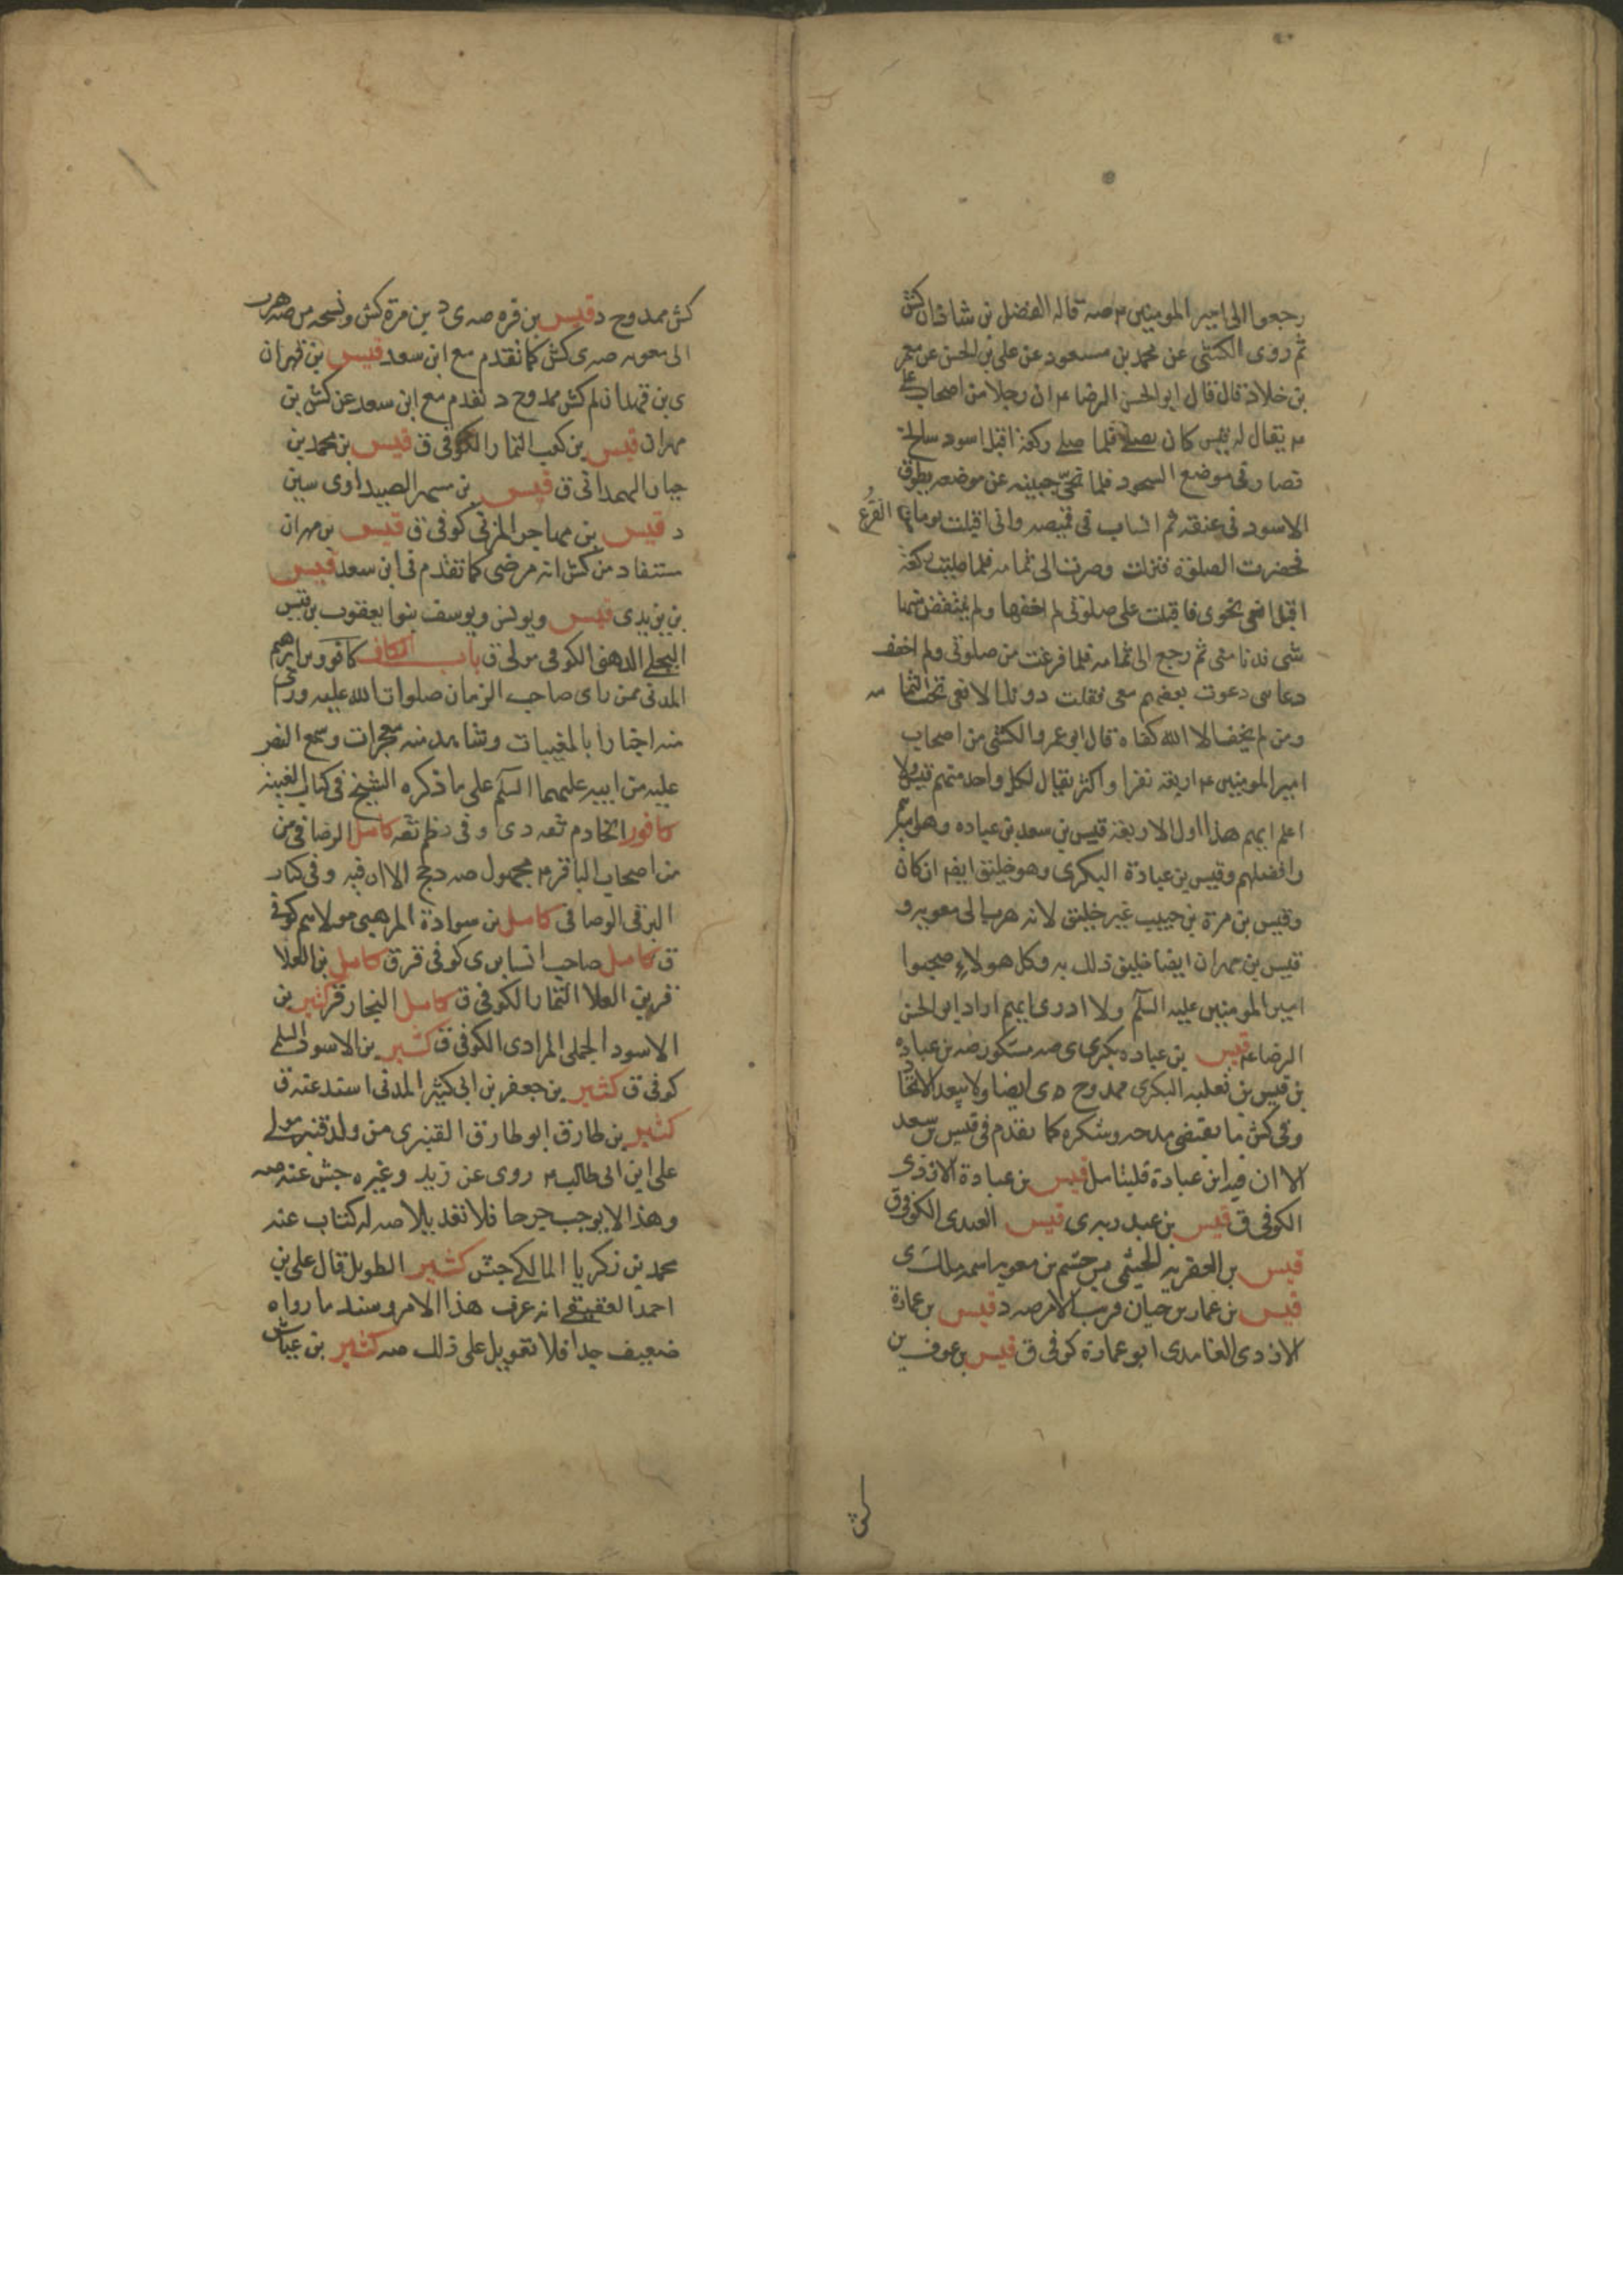 رجعوا الى امير المومنين ٤ صه قاله الفضل بن شاذان كش
ثم روى الكشى عن محمد بن مسعود عن على بن الحسن عن معمر
بن خلاد قال قال ابو الحسن الرضا ٤ ان رجلا من اصحاب على
٤ يقال له قيس كان يصلى فلما صلى ركعة اقبل اسود سالخ
فصار فى موضع السجود فلما نحى جبينه عن موضعه يطوق
الاسود فى عنقه ثم انساب فى قميصه وانى اقبلت يوما من الفرع
فحضرت الصلوة فنزلت وصرت الى ثمامه فلما صليت ركعة
اقبل افعى نحوى فاقبلت على صلوتى لم اخففها ولم ينتقض منها
شى فدنا منى ثم رجع الى ثمامه فلما فرغت من صلوتى ولم اخفف
دعاى دعوت بعضهم معى فقلت دونك الافعى تحت الثمامه
ومن لم يخف الا الله كفاه قال ابو عمرو الكشى من اصحاب
امير المومنين ٤ اربعة نفر او اكثر يقال لكل واحد منهم قيس ولا
اعلم ايهم هذا اول الاربعة قيس بن سعد بن عباده وهو اميرهم
وافضلهم وقيس بن عبادة البكرى وهو خليق ايضا ان كان
وقيس بن مرة بن حبيب غير خليق لانه هرب الى معويه و
قيس بن مهران ايضا خليق ذلك به وكل هولاء صحبوا
امير المومنين عليه السلم ولا ادرى ايهم اراد ابو الحسن
الرضا ٤ قيس بن عباده بكرى ى صه مشكور صه بن عباده
بن قيس بن ثعلبه البكرى ممدوح ى ايضا ولا يبعد الاتحاد
وفى كش ما يقتضى مدحه وشكره كما تقدم فى قيس بن سعد
الا ان فيه ابن عبادة فليتامل قيس بن عبادة الازدى
الكوفى ق قيس بن عبد ربه ى قيس العبدى الكوفى ق
قيس بن العقربه الجشمى من جشم بن معويه اسمه مالك ى
قيس بن عمار بن حيان قريب الامر صه د قيس بن عمارة
الازدى الغامدى ابو عمارة كوفى ق قيس بن عوف بن
كش ممدوح د قيس بن قره صه ى د بن مرة كش ونسخه من صه هرب
الى معويه صه ى كش كما تقدم مع ابن سعد قيس بن قهران
ى بن قهدان لم كش ممدوح د تقدم مع ابن سعد عن كش بن
مهران قيس بن كعب التمار الكوفى ق قيس بن محمد بن
جبار الهمدانى ق قيس بن مسهر الصيداوى سين
د قيس بن مهاجر المزنى كوفى ق قيس بن مهران
مستفاد من كش انه مرضى كما تقدم فى ابن سعد قيس
بن يزيد ى قيس ويونس ويوسف بنوا يعقوب بن قيس
البجلى الدهنى الكوفى مولى ق باب الكاف كافور بن ابرهيم
المدنى ممن راى صاحب الزمان صلوات الله عليه وروى
منه اخبارا بالمغيبات وشاهد منه معجزات وسمع النص
عليه من ابيه عليهما السلم على ما ذكره الشيخ فى كتاب الغيبة
كافور الخادم ثقه دى وفى د ظم ثقه كامل الوصافى من
من اصحاب الباقر ٤ مجهول صه د جخ الا ان فيه وفى كتاب
البرقى الوصافى كامل بن سوادة المرهبى مولاهم كوفى
ق كامل صاحب السابرى كوفى قر ق كامل بن العلا
قر بن العلا التمار الكوفى ق كامل النجار قر كثير بن
الاسود الجملى المرادى الكوفى ق كثير بن الاسود السلمى
كوفى ق كثير بن جعفر بن ابى كثير المدنى اسند عنه ق
كثير بن طارق ابو طارق القنبرى من ولد قنبر مولى
على ابن ابى طالب ٤ روى عن زيد وغيره جش عنه صه
وهذا لا يوجب جرحا فلا تعديلا صه له كتاب عنه
محمد بن زكريا المالكى جش كثير الطويل قال على بن
احمد العقيقى انه عرف هذا الامر وسند ما رواه
ضعيف جدا فلا تعويل على ذلك صه كثير بن عياش